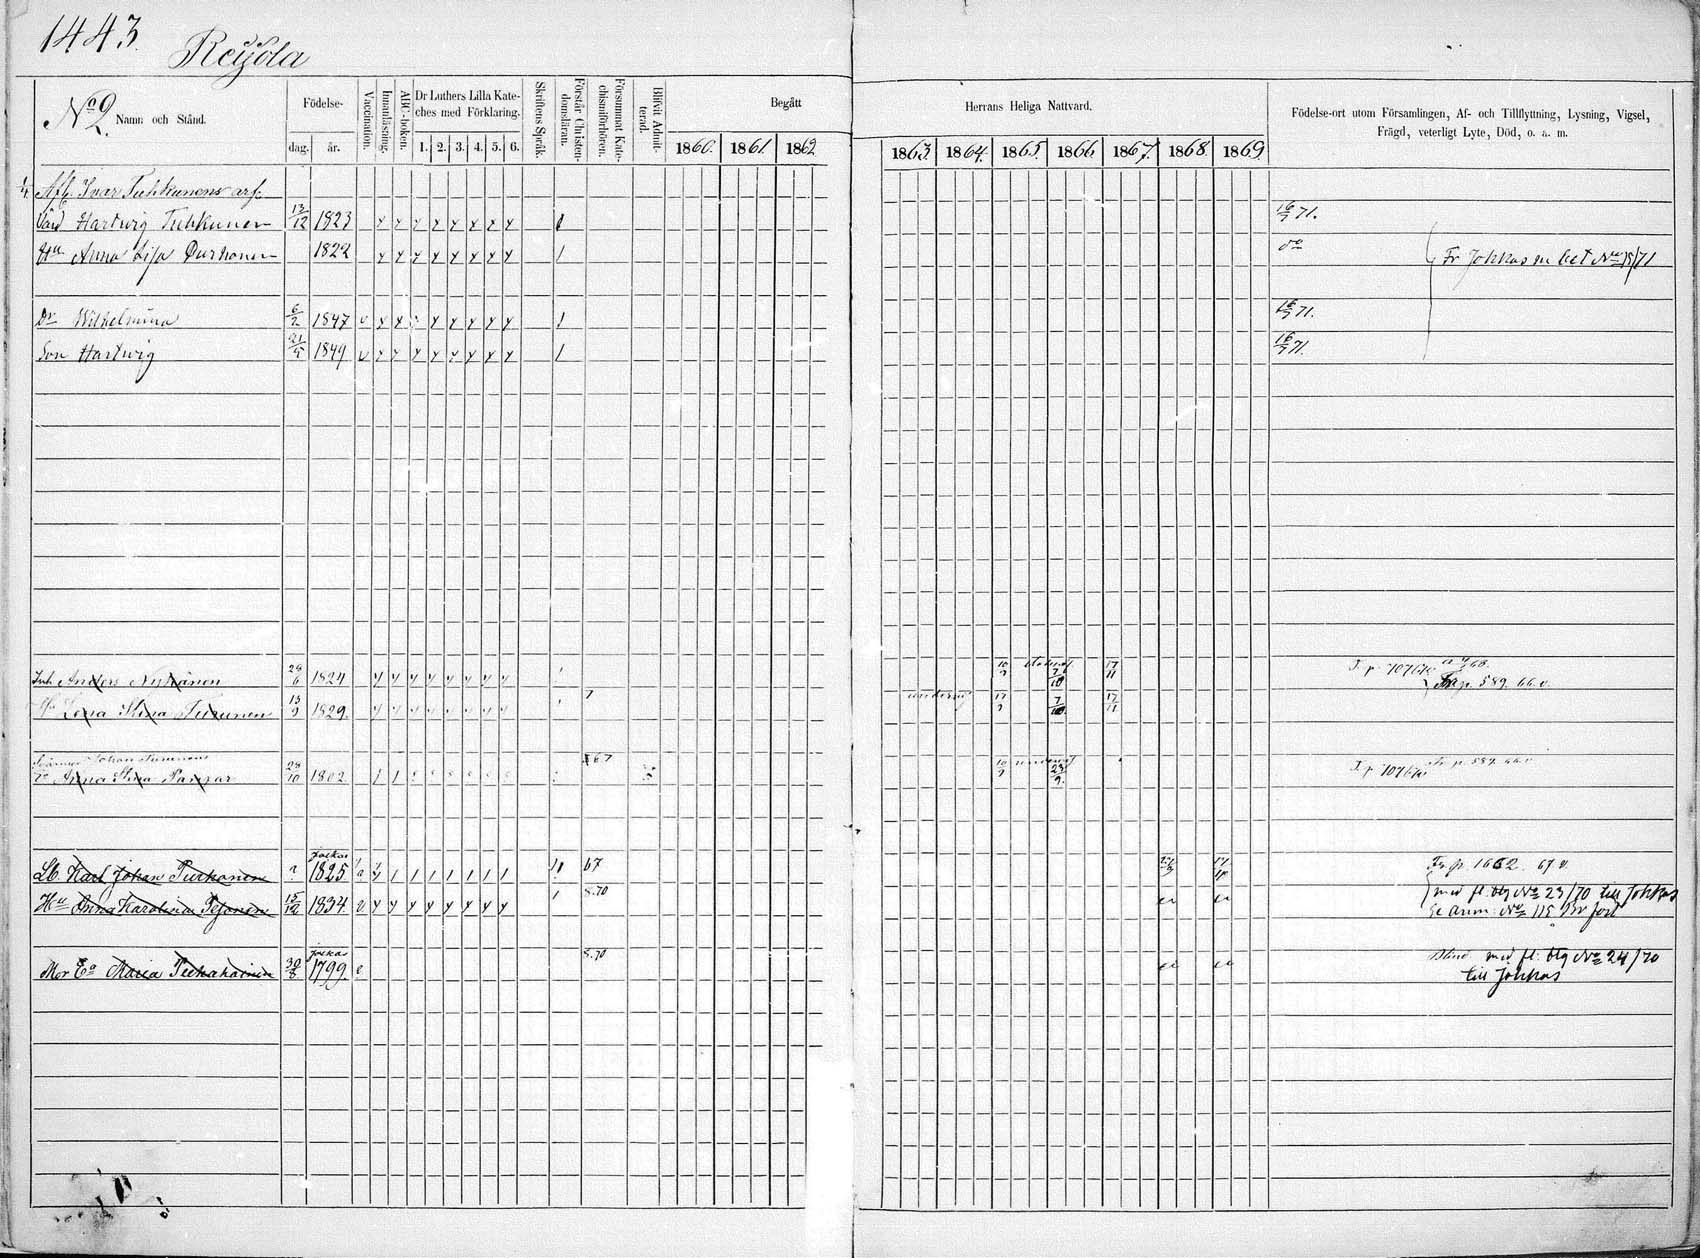 1443.
Reijola
No 2. Namn och Stånd.
Födelse-
dag. år.
Vaccination.
Innanläsning.
ABC-boken.
Dr Luthers Lilla Kate-
ches med Förklaring.
1. 2. 3. 4. 5. 6.
Skriftens Språk.
Förstår Christen-
domsläran.
Försummat Kate-
chismförhören.
Blifvit Admit-
terad.
Begått
1860. 1861. 1862
Herrans Heliga Nattvard.
1863. 1864. 1865. 1866 1867. 1868. 1869.
Födelse-ort utom Församlingen, Af- och Tillflyttning, Lysning, Vigsel,
Frägd, veterligt Lyte, Död, o. a. m.
Ivar Tuhkunens arf.
Hartwig Tuhkunen 13/12 1823 16/7 71.
Hu Anna Lisa Purhonen 1822 do Fr Jokkas m bet No 15/71
Dr Wilhelmina 6/2 1847 v 16/7 71.
Son Hartwig 21/5 1849 v 16/7 71.
Inh Anders Nykänen 28/6 1824 10/9 7/10 17/11
p. 589. 66.v.
Hu Lena Stina Turunen 13/9 1829. 7 17/9 7/10 17/11
Johan Turunens
Anna Stina Panzar 28/10 1802 67 10/9 23/9. p. 589. 66.v
Jockas
Lb. Karl Johan Purhonen 1825 67 Fr. p. 1662. 67 v.
Hu Anna Karolina Pesonen 15/12 1834. v. 8.70 med fl. btg No 23/70 till Jokkas
Se anm: No 115
Jockas
Mor Ea Maria Puhakainen 30/8 1799. 8.70 Blind med fl. btg No 24/70
till Jokkas